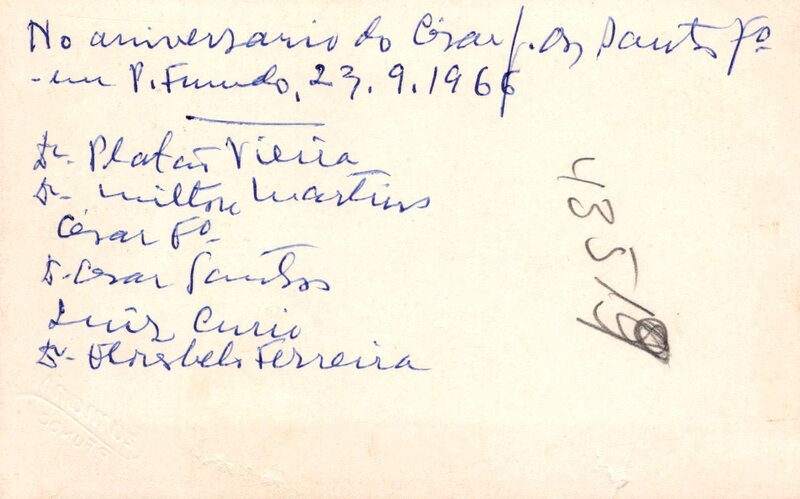 No aniversario do César J. dos Santos Fº
- em P. Fundo, 23.9.1966
Dr. Platão Vieira
Dr. Milton Martins
César Fº.
Dr. Cesar Santos
Luiz Curio
Dr. Floresbelo Ferreira
435/9
P. FUNDO